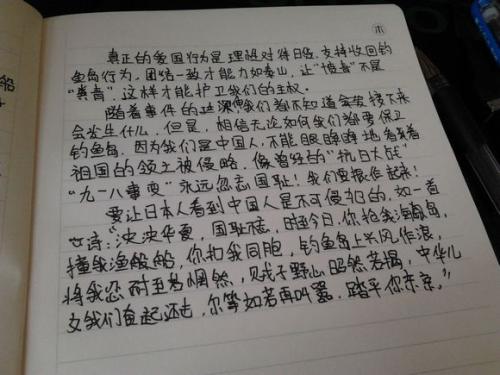 木
真正的爱国行为是理智对待日货,支持收回钓
鱼岛行为,团结一致才能力如泰山,让“愤青”不是
“粪青”.这样才能护卫我们的主权.
随着事件的 我们都不知道 接下来
会发生什么,但是,相信无论如何我们都要保卫
钓鱼岛.因为我们是中国人,不能眼睁睁地看着
祖国的领土被侵略,像曾经的“抗日大战”
“九一八事变”永远勿忘国耻!我们要振作起来!
要让日本人看到中国人是不可侵犯的,如一首
诗:“泱泱华夏,国耻不忘,时至今日,你抢我海岛,
撞我渔船,你扣我同胞,钓鱼岛上兴风作浪,
将我忍耐至 惘然,见我不野心昭然若揭,中华儿
女我们奋起还击,尔等如若再叫嚣,踏平你东京.”
船